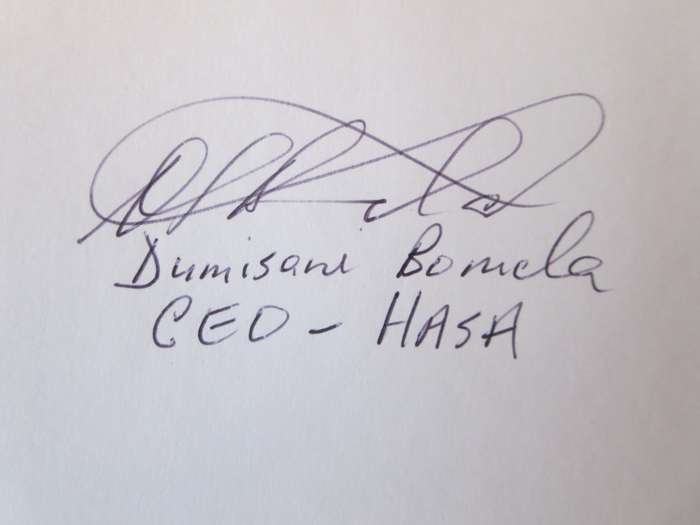 Dumisani Bomela
CEO - HASA